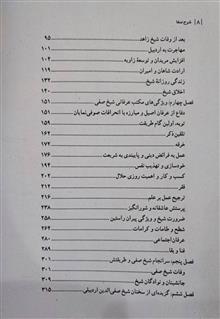 ۸ | شرح صفا
بعد از وفات شیخ زاهد ۹۵
مهاجرت به اردبیل ۱۰۱
افزایش مریدان و توسعهٔ زاویه ۱۰۴
ارادت شاهان و امیران ۱۱۹
زندگی روزانهٔ شیخ ۱۳۲
اخلاق شیخ ۱۴۰
فصل چهارم، ویژگی‌های مکتب عرفانی شیخ صفی ۱۵۱
دفاع از عرفان اصیل و مبارزه با انحرافات صوفی‌نمایان ۱۵۱
توبه، اولین گام طریقت ۱۵۹
تلقین ذکر ۱۶۴
خرقه ۱۷۲
عمل به فرائض دینی و پایبندی به شریعت ۱۷۷
خودسازی و تهذیب نفس ۱۹۰
کسب و کار و اهمیت روزی حلال ۲۰۲
فقر ۲۱۲
ترجیح عمل بر علم ۲۱۶
پرستش عاشقانه و شورانگیز ۲۳۸
ضرورت شیخ و ویژگی پیران راستین ۲۵۸
شطح و طامات و کرامات ۲۶۴
عرفان اجتماعی ۲۸۰
فنا و بقا ۲۸۹
فصل پنجم، سرانجام شیخ صفی و طریقتش ۳۰۱
وفات شیخ ۳۰۱
جانشینان و نوادگان شیخ ۳۰۹
فصل ششم، گزیده‌ای از سخنان شیخ صفی‌الدین اردبیلی ۳۱۵